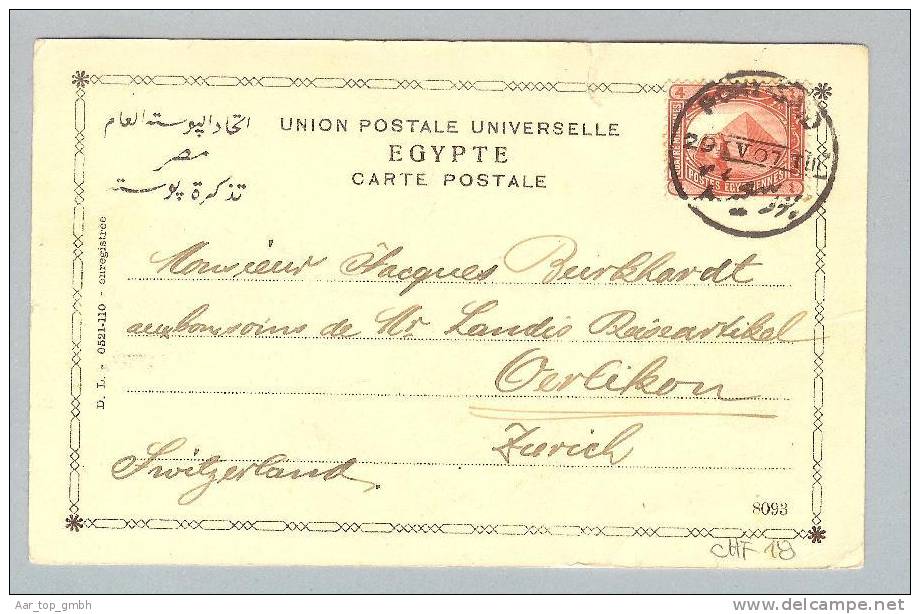 اتحاد البوسته العام
مصر
تذكرة بوسته
UNION POSTALE UNIVERSELLE
EGYPTE
CARTE POSTALE
4
POSTES EGYPTIENNES
PORT-SAID
D. L. - 0521-110 - enregistrée
Monsieur Jacques Burkhardt
aux bons soins de Mr Landis Reiseartikel
Oerlikon
Zurich
Switzerland
8093
CHF 18
Aar_top_gmbh
delcampe.net